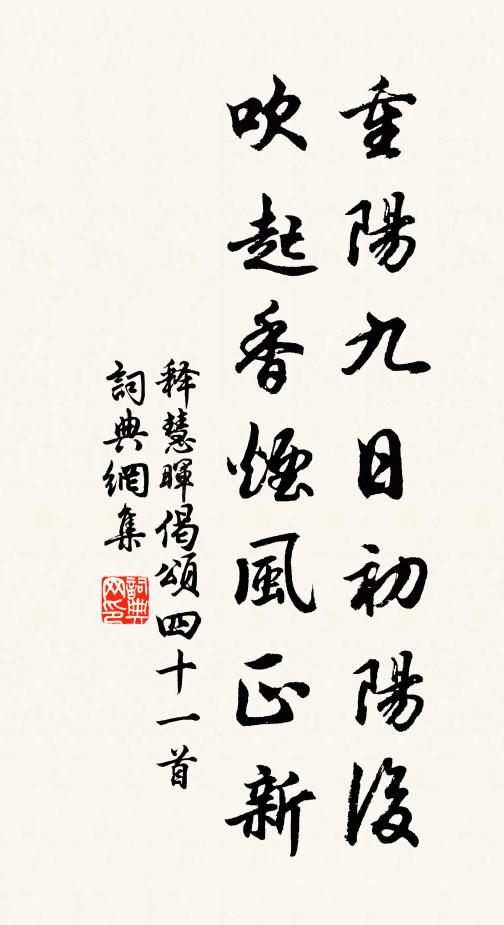 重陽九日初陽後
吹起香煙風正新
释慧暉偈頌四十一首
詞典網集
詞典网印